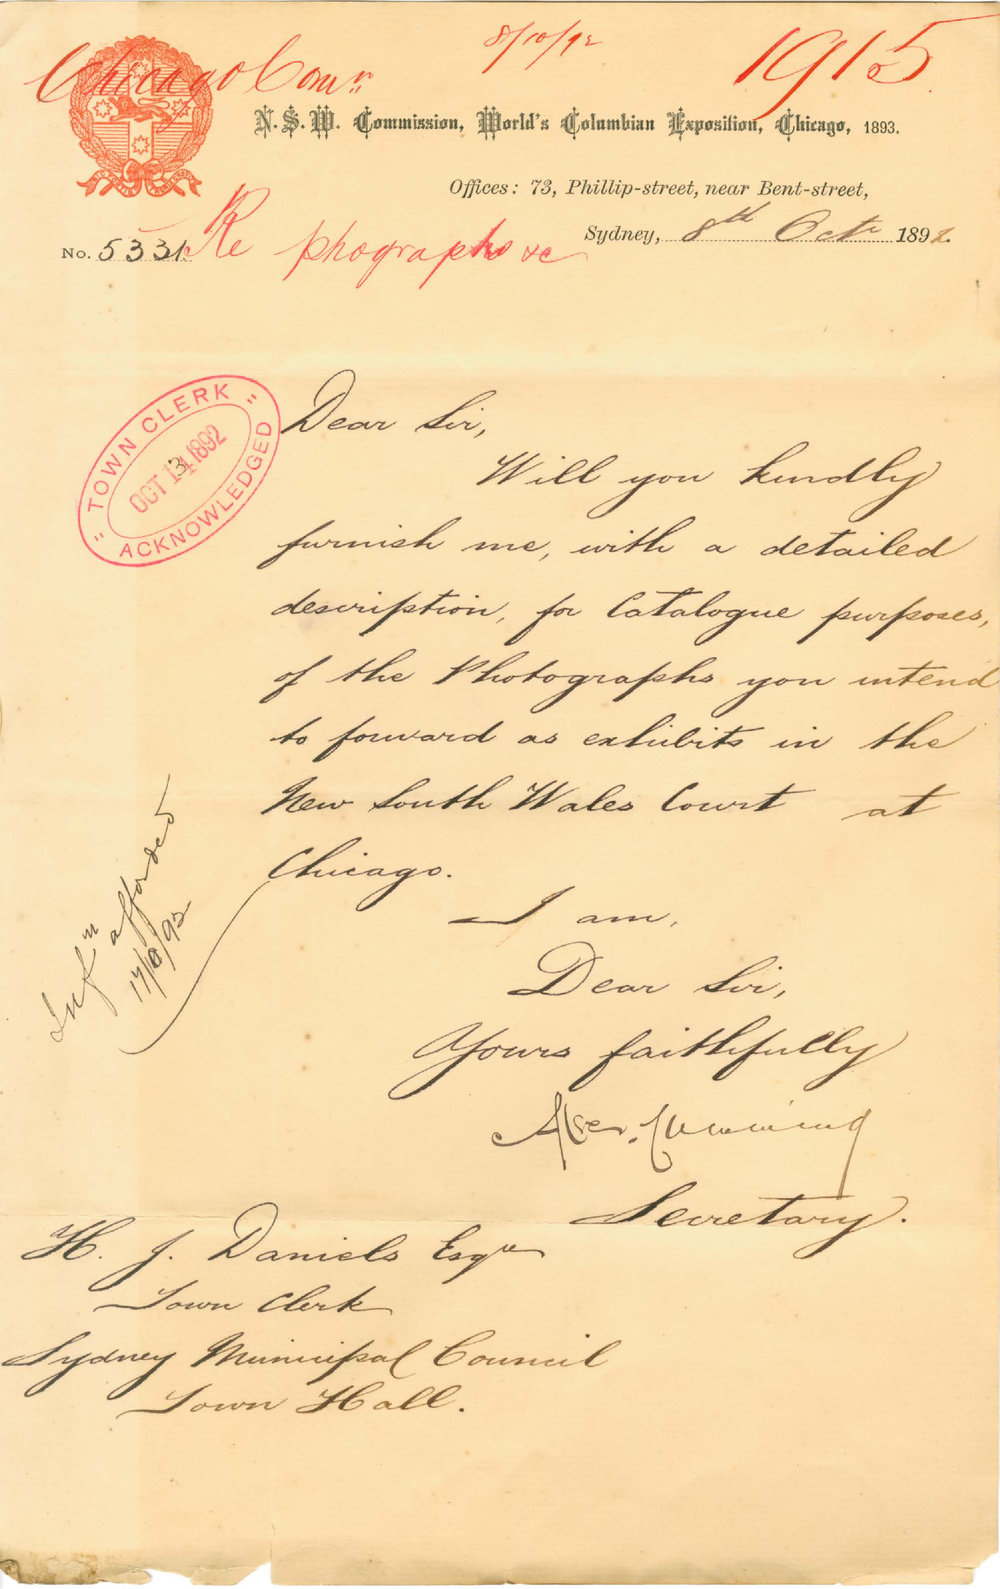 Chicago Comn.
8/10/92
1915
N.S.W. Commission, World's Columbian Exposition, Chicago, 1893.
Offices: 73, Phillip-street, near Bent-street,
Sydney, 8th Oct. 1892.
No. 5331.
Re phographs &c
"TOWN CLERK"
OCT 13 1892
ACKNOWLEDGED
Dear Sir,
Will you kindly
furnish me, with a detailed
description, for Catalogue purposes,
of the Photographs you intend
to forward as exhibits in the
New South Wales Court at
Chicago.
Infn afforded
17/10/92
I am,
Dear Sir,
Yours faithfully
Secretary.
H. J. Daniels Esqre
Town Clerk
Sydney Municipal Council
Town Hall.